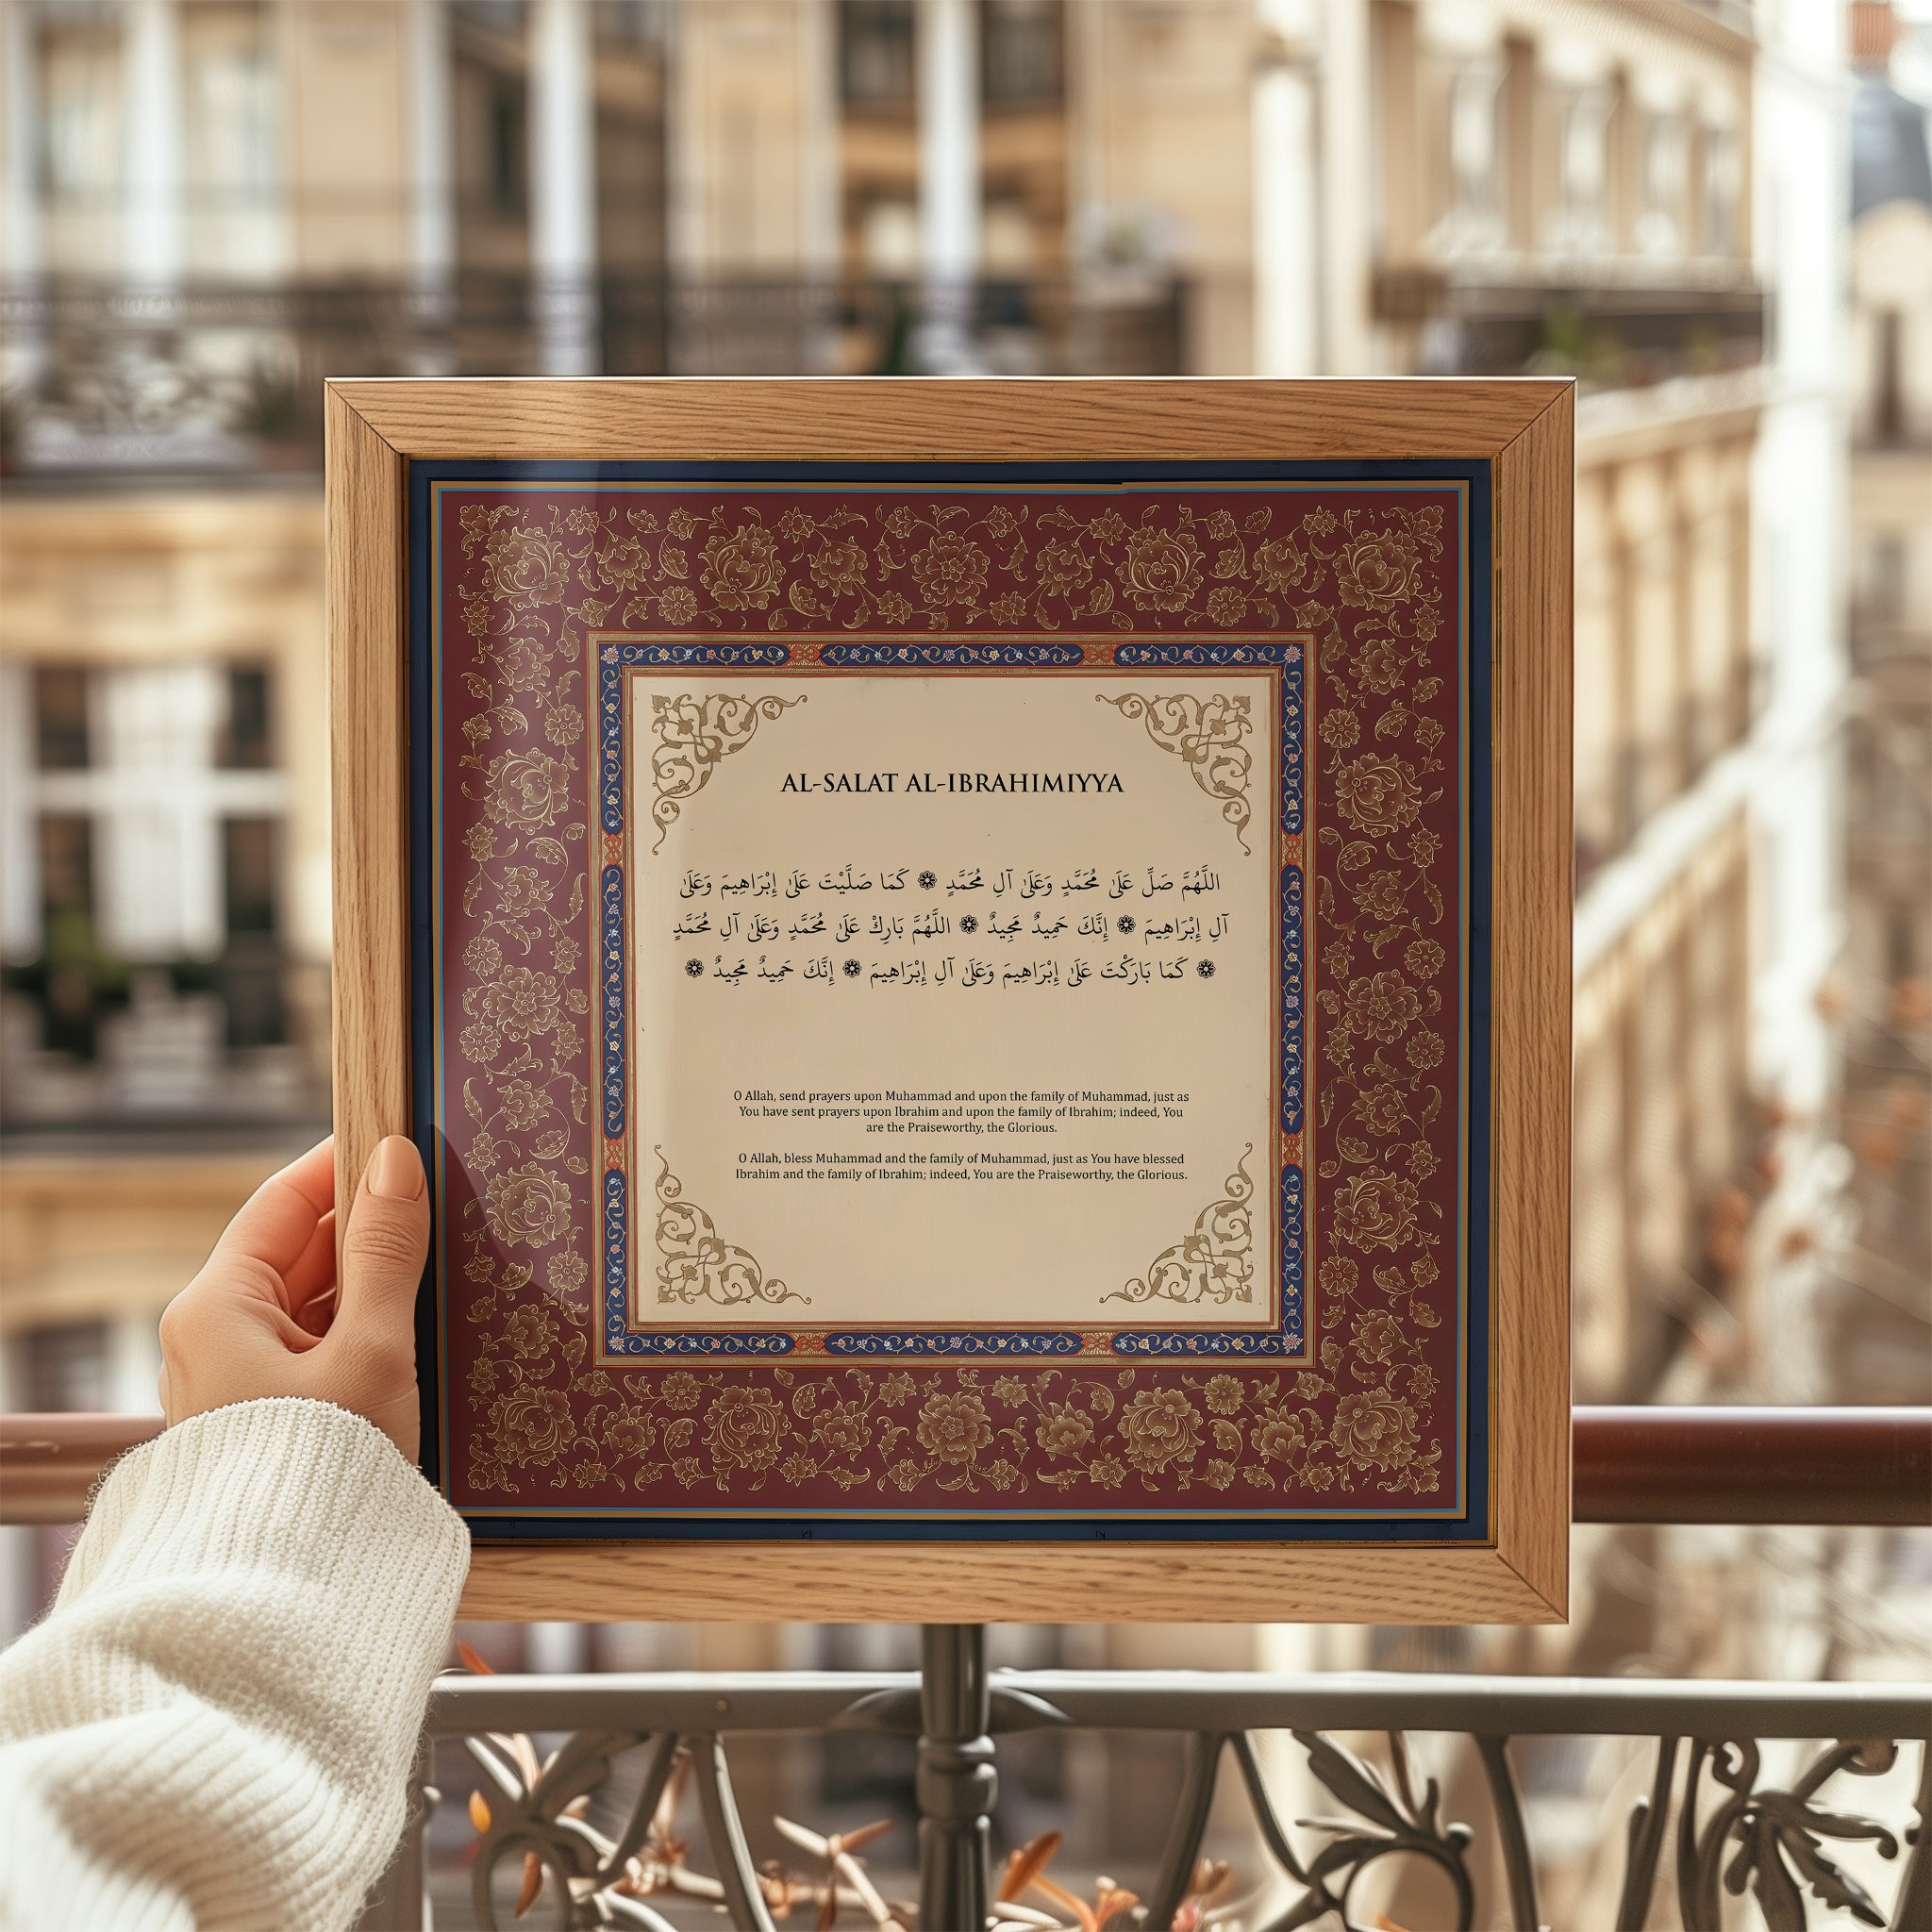 AL-SALAT AL-IBRAHIMIYYA
اللَّهُمَّ صَلِّ عَلَىٰ مُحَمَّدٍ وَعَلَىٰ آلِ مُحَمَّدٍ ❁ كَمَا صَلَّيْتَ عَلَىٰ إِبْرَاهِيمَ وَعَلَىٰ
آلِ إِبْرَاهِيمَ ❁ إِنَّكَ حَمِيدٌ مَجِيدٌ ❁ اللَّهُمَّ بَارِكْ عَلَىٰ مُحَمَّدٍ وَعَلَىٰ آلِ مُحَمَّدٍ
❁ كَمَا بَارَكْتَ عَلَىٰ إِبْرَاهِيمَ وَعَلَىٰ آلِ إِبْرَاهِيمَ ❁ إِنَّكَ حَمِيدٌ مَجِيدٌ ❁
O Allah, send prayers upon Muhammad and upon the family of Muhammad, just as
You have sent prayers upon Ibrahim and upon the family of Ibrahim; indeed, You
are the Praiseworthy, the Glorious.
O Allah, bless Muhammad and the family of Muhammad, just as You have blessed
Ibrahim and the family of Ibrahim; indeed, You are the Praiseworthy, the Glorious.